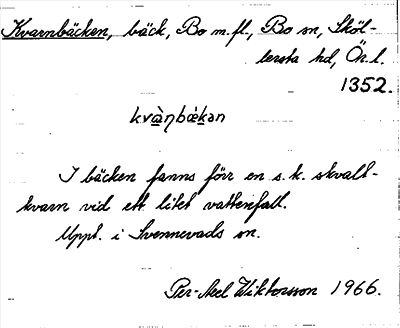 Kvarnbäcken, bäck, Bo m.fl., Bo sn, Sköl-
lersta hd, Ör. l.
1352.
kvà̱ɳbæ̀k̠ən
I bäcken fanns förr en s.k. skvalt-
kvarn vid ett litet vattenfall.
Uppt. i Svennevads sn.
Per-Axel Wiktorsson 1966.